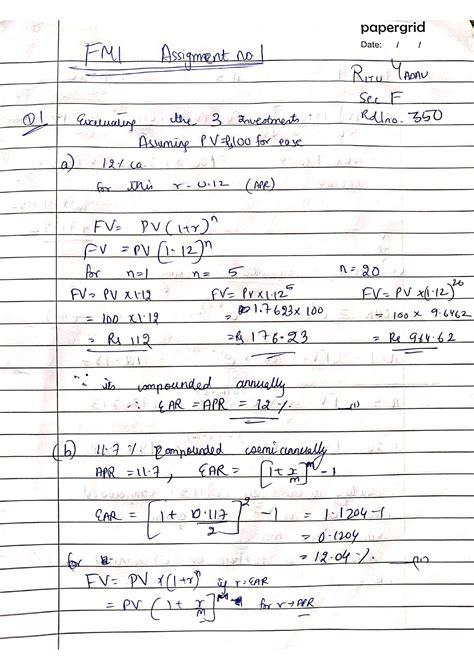 papergrid
Date: / /
FM1 Assignment no 1
Ritu Yadav
Sec F
Rollno. 350
Q1 Evaluating the 3 investments:
Assuming PV=₹100 for ease
a) 12% ca
for this r = 0.12 (APR)
FV= PV(1+r)^n
FV = PV(1.12)^n
for n=1 n= 5 n = 20
FV= PV x1.12 FV= PVx1.12^5 FV= PV x(1.12)^20
= 100 x1.12 = 1.7623x 100 = 100 x 9.6462
= Rs 112 =Rs 176.23 = Rs 964.62
∵ its compounded annually
∴ EAR = APR = 12 %. —(i)
(b) 11.7 % compounded semiannually
APR =11.7, EAR= [1+r/m]^m -1
EAR= [1 + 0.117/2]^2 - 1 = 1.1204-1
= 0.1204
= 12.04 %. —(ii)
for
FV= PV x(1+r)^n if r=EAR
= PV (1+ r/m) for r→APR